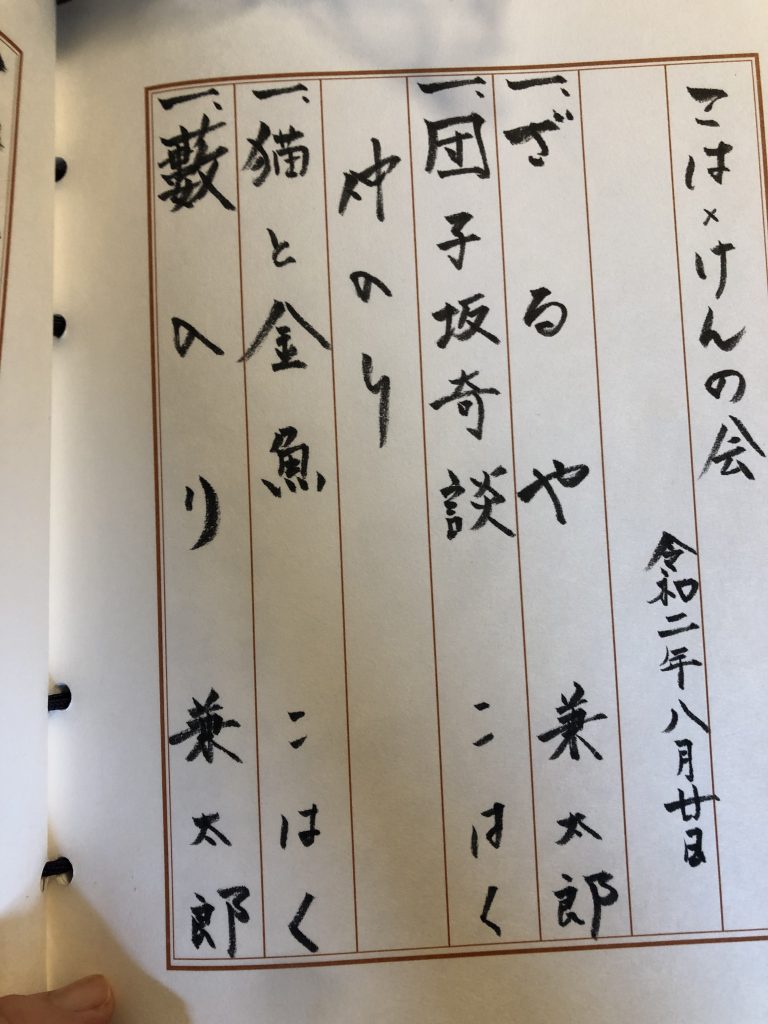 こは×けんの会
令和二年八月廿日
一、ざるや 兼太郎
一、団子坂奇談 こはく
仲のり
一、猫と金魚 こはく
一、藪入り 兼太郎